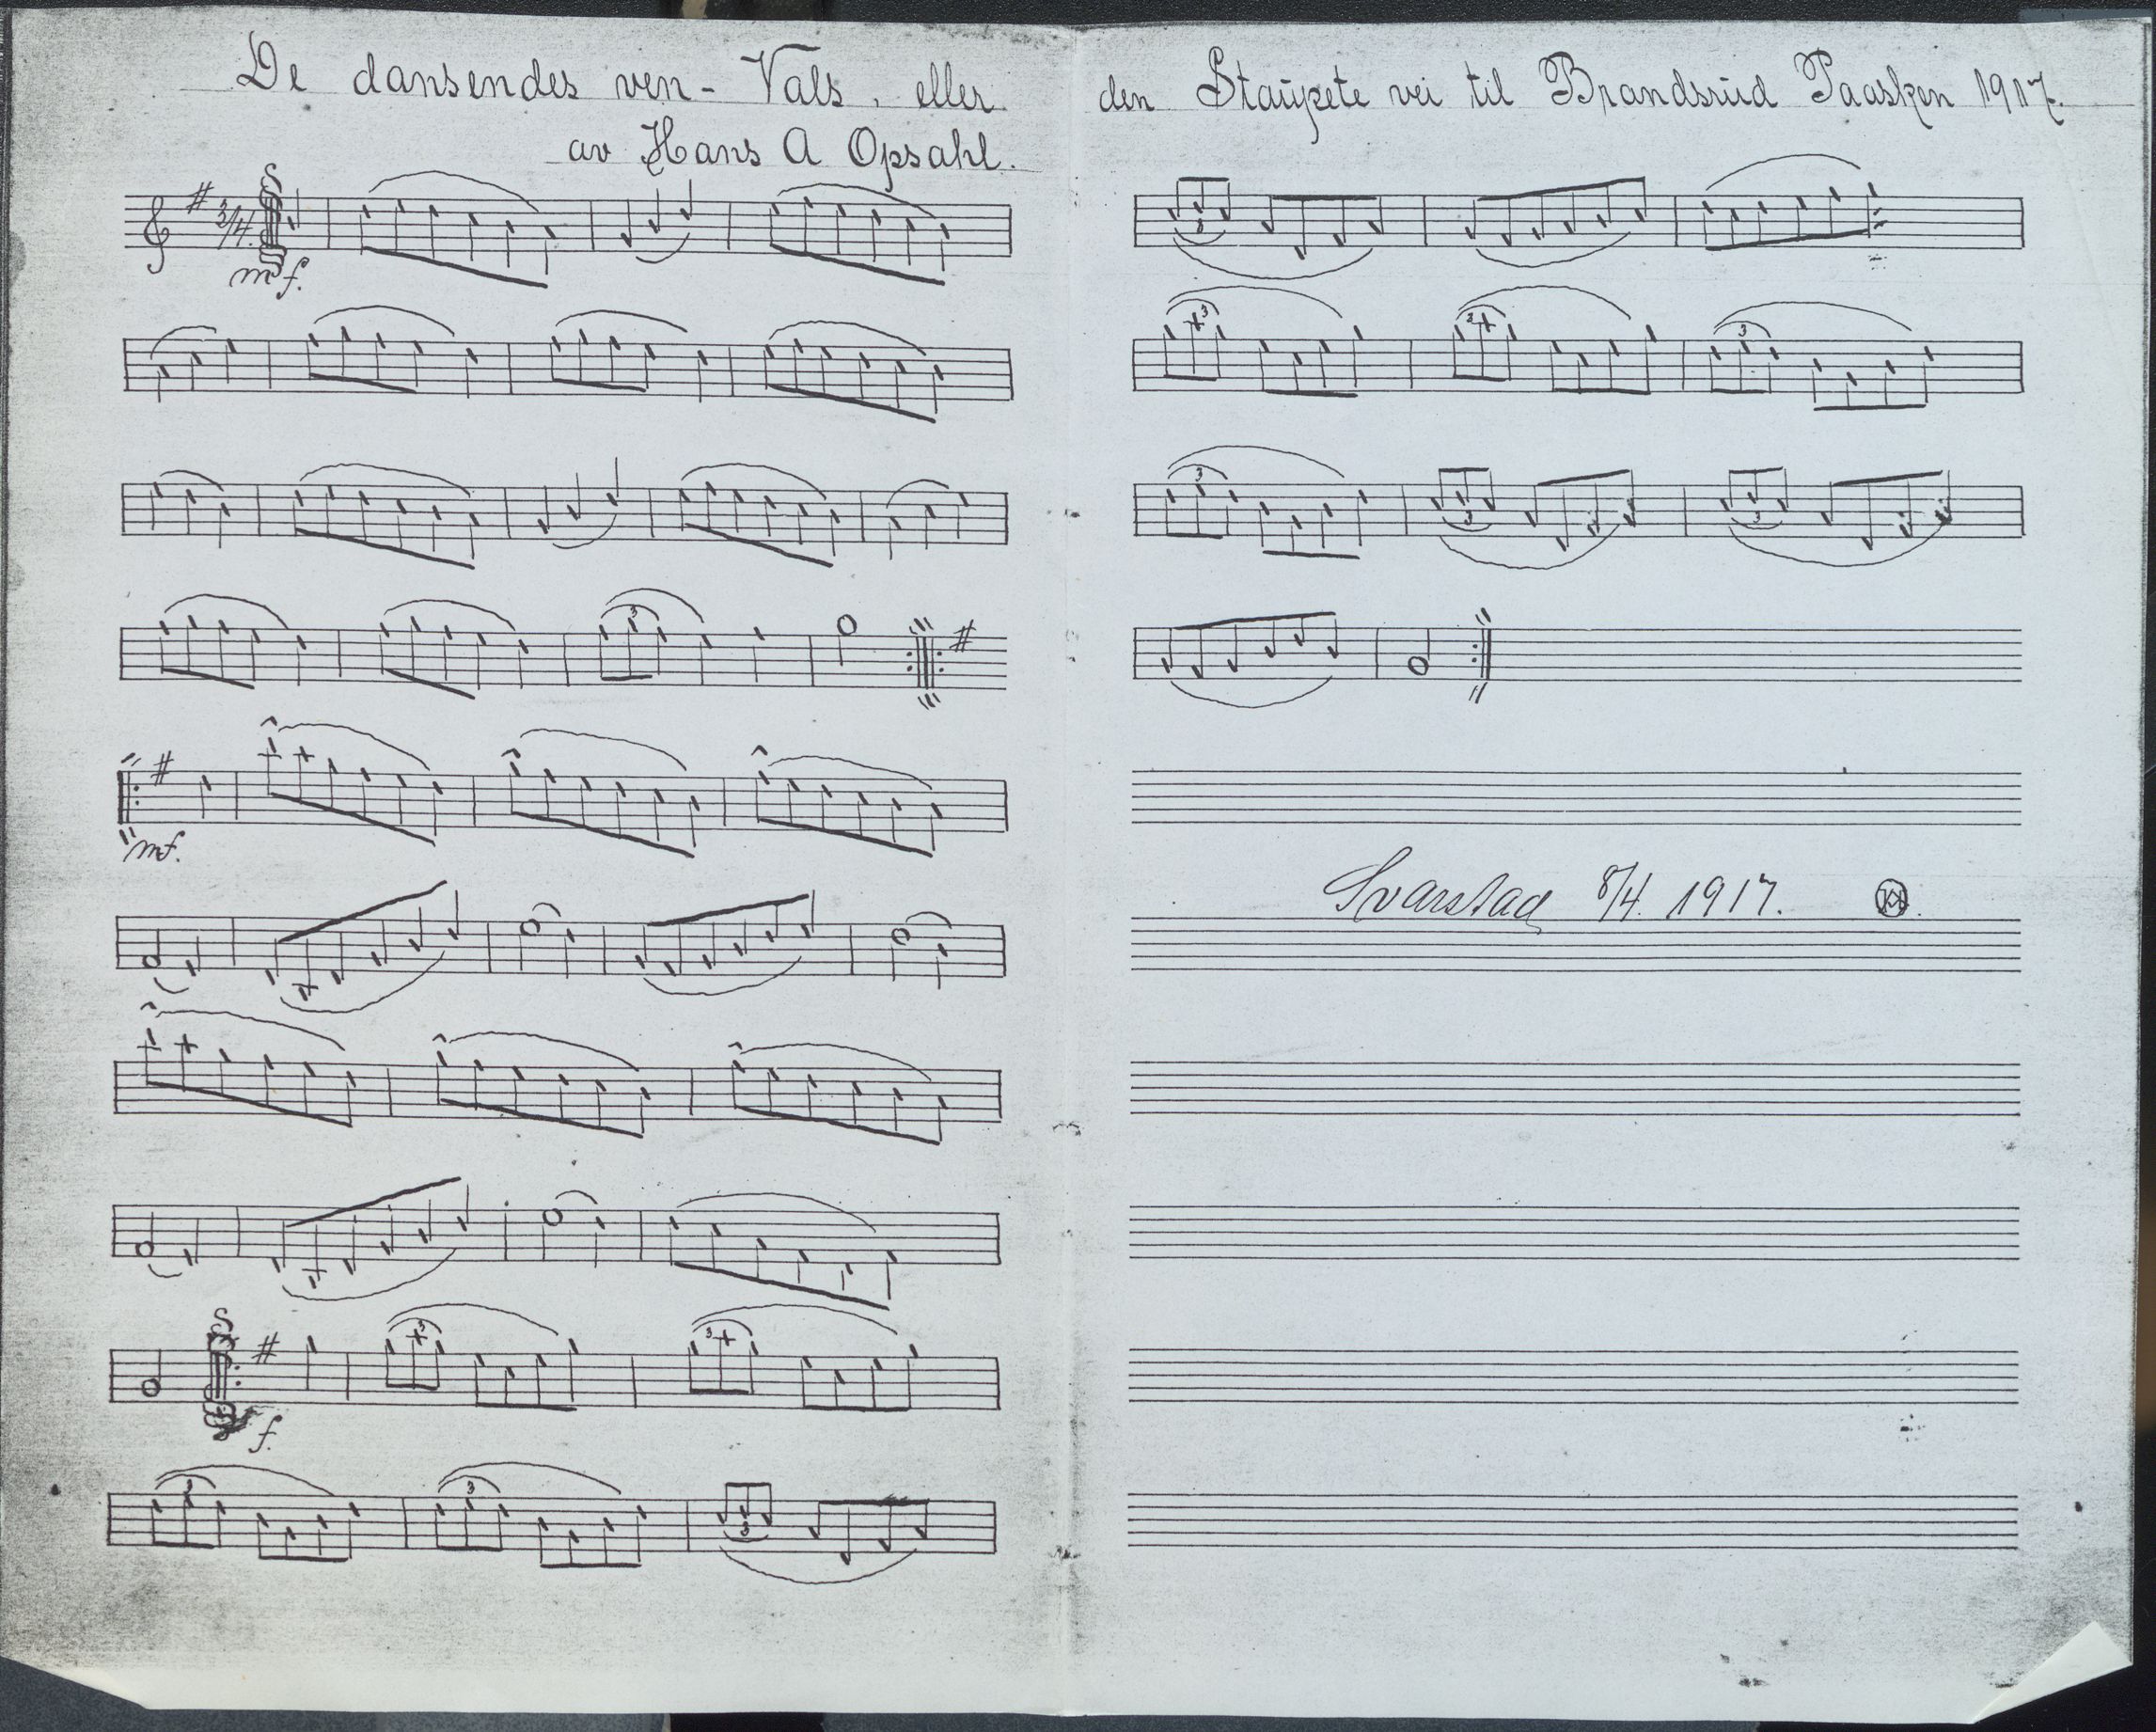 De dansendes ven - Vals, eller den Staupete vei til Brandsrud Paasken 1917.
av Hans A Opsahl.
3/4.
mf.
3
3
mf.
f.
3
3
3
3
3
3
3
3
3
3
3
3
Svarstad 8/4. 1917.